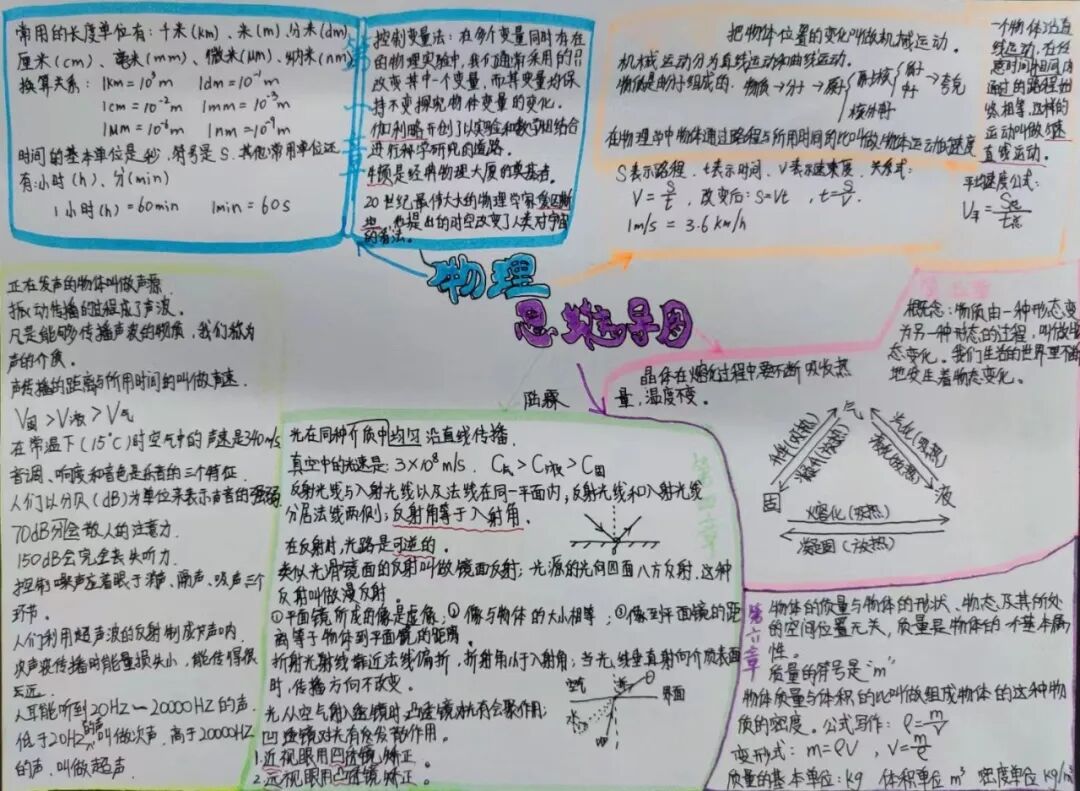 常用的长度单位有：千米(km)、米(m)、分米(dm)、
厘米(cm)、毫米(mm)、微米(μm)、纳米(nm)
换算关系：1km=10³m 1dm=10⁻¹m
1cm=10⁻²m 1mm=10⁻³m
1μm=10⁻⁶m 1nm=10⁻⁹m
时间的基本单位是秒，符号是S.其他常用单位还
有:小时(h)、分(min)
1小时(h)=60min 1min=60s
第一章
控制变量法：在多个变量同时存在
的物理实验中，我们通常采用的
改变其中一个变量，而其变量均保
持不变探究物体变量的变化。
伽利略开创了以实验和数学相结合
进行科学研究的道路。
牛顿是经典物理大厦的奠基者。
20世纪最伟大的物理学家爱因斯
坦，他提出的时空改变了人类对宇宙
的看法。
把物体位置的变化叫做机械运动。
机械运动分为直线运动和曲线运动。
物质是由分子组成的．物质→分子→原子
原子核
质子
中子
→夸克
核外电子
在物理学中物体通过路程与所用时间的比叫做物体运动的速度
S表示路程．t表示时间．V表示速度．关系式：
V=S/t，改变后：S=Vt，t=S/V．
1m/s=3.6km/h
一个物体沿直
线运动，在任
意时间相同内
通过的路程始
终相等，这样的
运动叫做匀速
直线运动。
平均速度公式：
V平=S总/t总
物理
思维导图
陆霖
正在发声的物体叫做声源
振动传播的过程成了声波．
凡是能够传播声波的物质，我们称为
声的介质．
声传播的距离与所用时间的叫做声速．
V固>V液>V气
在常温下(15℃)时空气中的声速是340m/s
音调、响度和音色是乐音的三个特征．
人们以分贝(dB)为单位来表示声音的强弱
70dB会散人的注意力．
150dB会完全丧失听力．
控制噪声应着眼于消声、隔声、吸声三个
环节．
人们利用超声波的反射制成了声呐．
次声波传播时能量损失小，能传得很
远．
人耳能听到20HZ—20000HZ的声．
低于20HZ的声叫做次声．高于20000HZ
的声．叫做超声．
第四章
光在同种介质中均匀沿直线传播．
真空中的光速是：3×10⁸m/s．C气>C液>C固
反射光线与入射光线以及法线在同一平面内；反射光线和入射光线
分居法线两侧；反射角等于入射角．
在反射时，光路是可逆的．
类似光滑镜面的反射叫做镜面反射；光源的光向四面八方反射，这种
反射叫做漫反射．
①平面镜所成的像是虚像；②像与物体的大小相等；③像到平面镜的距
离等于物体到平面镜的距离．
折射光射线靠近法线偏折，折射角小于入射角；当光线垂直射向介质表面
时，传播方向不改变。
空气
水
界面
光从空气射入透镜时，凸透镜对光有会聚作用；
凹透镜对光有发散作用。
1.近视眼用凹透镜矫正。
2.远视眼用凸透镜矫正。
概念：物质由一种形态变
为另一种形态的过程，叫做物
态变化。我们生活的世界里不断
地发生着物态变化。
晶体在熔化过程中要不断吸收热
量，温度不变．
气
升华(吸热)
凝华(放热)
汽化(吸热)
液化(放热)
固
液
熔化(吸热)
凝固(放热)
第六章
物体的质量与物体的形状、物态及其所处
的空间位置无关，质量是物体的一个基本属
性。
质量的符号是"m"
物体质量与体积的比叫做组成物体的这种物
质的密度。公式写作：ρ=m/V
变形式：m=ρV，V=m/ρ
质量的基本单位：kg 体积单位m³ 密度单位kg/m³